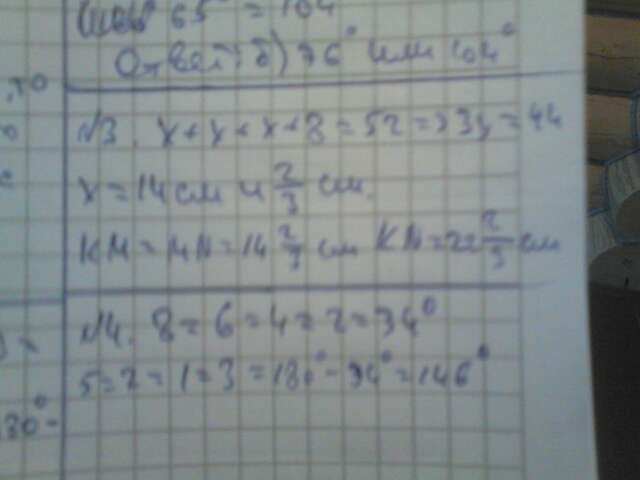 65° = 104
Ответ: б) 76° или 104°
№3. x + x + x + 8 = 52 => 3x = 44
x = 14 см и 2/3 см.
KM = MN = 14 2/3 см KN = 22 2/3 см
№4. 8 = 6 = 4 = 2 = 34°
5 = 7 = 1 = 3 = 180° - 34° = 146°